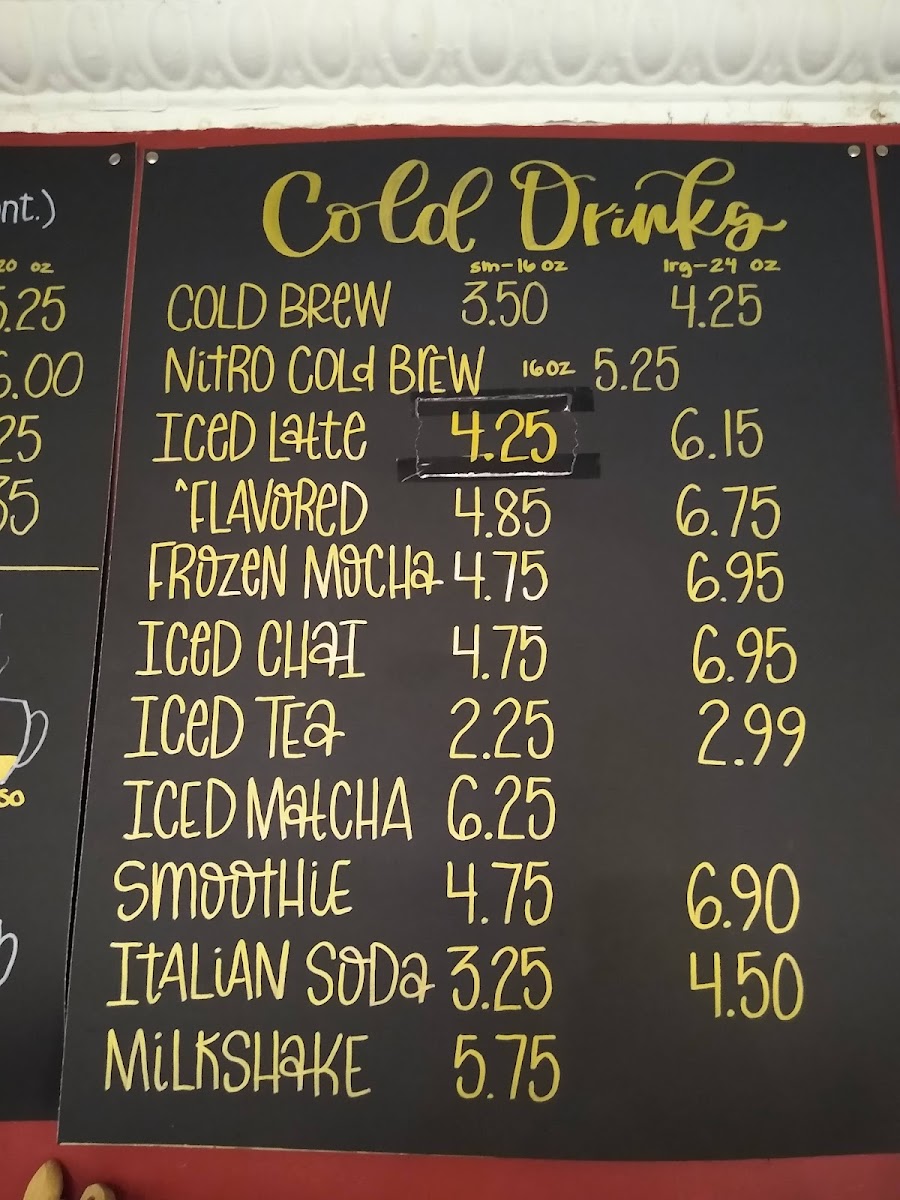 nt.)
20 oz
5.25
6.00
25
35
so
Cold Drinks
sm-16 oz lrg-24 oz
COLD BREW 3.50 4.25
NITRO COLD BREW 16oz 5.25
ICED LATTE 4.25 6.15
^FLAVORED 4.85 6.75
FROZEN MOCHA 4.75 6.95
ICED CHAI 4.75 6.95
ICED TEA 2.25 2.99
ICED MATCHA 6.25
SMOOTHIE 4.75 6.90
ITALIAN SODA 3.25 4.50
MILKSHAKE 5.75